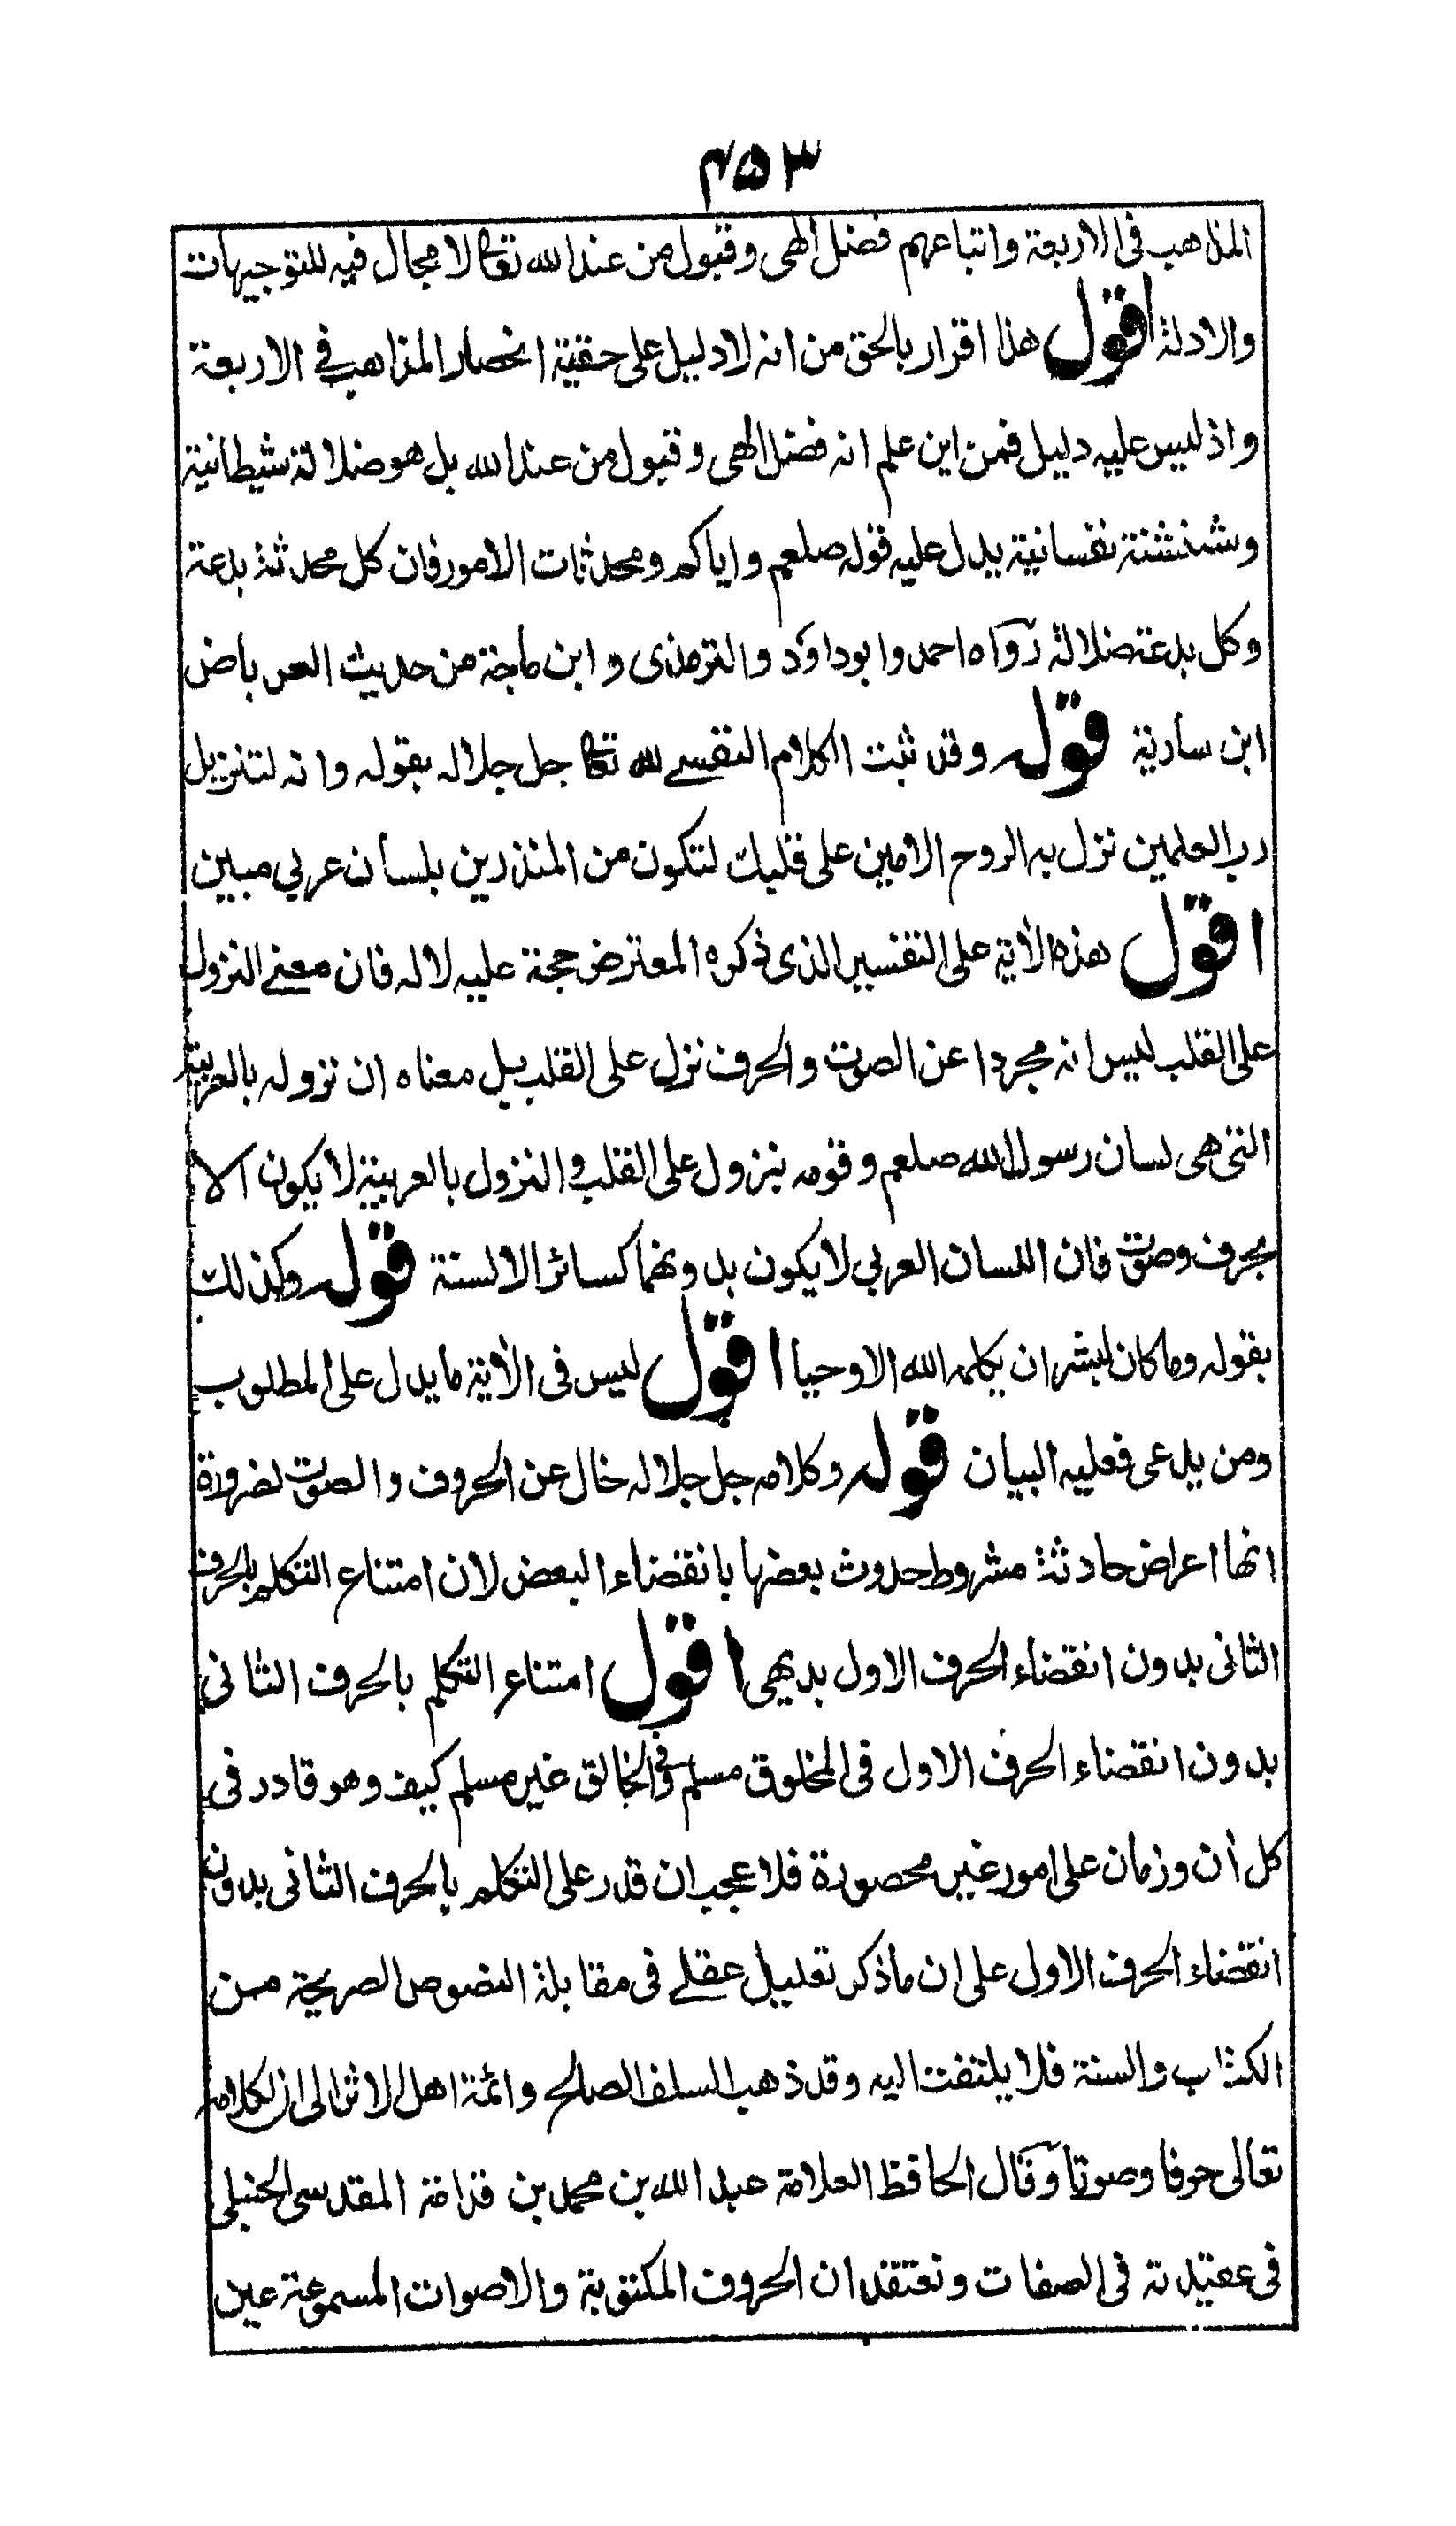 ۴۵۳
المذاهب فى الاربعة واتباعهم فضل الهى وقبول من عند الله تعالى لا مجال فيه للتوجيهات
والادلة اقول هذا اقرار بالحق من انه لا دليل على حقية انحصار المذاهب فى الاربعة
واذ ليس عليه دليل فمن اين علم انه فضل الهى وقبول من عند الله بل هو ضلالة شيطانية
وشنشنة نفسانية يدل عليه قوله صلعم واياكم ومحدثات الامور فان كل محدثة بدعة
وكل بدعة ضلالة رواه احمد وابوداود والترمذى وابن ماجة من حديث العرباض
ابن سارية قوله وقد ثبت الكلام النفسے لله تعالى جل جلاله بقوله وانه لتنزيل
رب العلمين نزل به الروح الامين على قلبك لتكون من المنذرين بلسان عربي مبين
اقول هذه الاٰية على التفسير الذى ذكره المعترض حجة عليه لا له فان معنے النزول
على القلب ليس انه مجردا عن الصوت والحرف نزل على القلب بل معناه ان نزوله بالعربية
التى هى لسان رسول الله صلعم وقومه نزول على القلب والنزول بالعربية لا يكون الا
بحرف وصوت فان اللسان العربي لا يكون بدونهما كسائر الالسنة قوله وكذلك
بقوله وما كان لبشر ان يكلمه الله الا وحيا اقول ليس فى الاٰية ما يدل على المطلوب
ومن يدعى فعليه البيان قوله وكلامه جل جلاله خال عن الحروف والصوت لضرورة
انها اعراض حادثة مشروط حدوث بعضها بانقضاء البعض لان امتناع التكلم بالحرف
الثانى بدون انقضاء الحرف الاول بديهى اقول امتناع التكلم بالحرف الثانى
بدون انقضاء الحرف الاول فى المخلوق مسلم وفى الخالق غير مسلم كيف وهو قادر فى
كل اٰن وزمان على امور غير محصورة فلا عجب ان قدر على التكلم بالحرف الثانى بدون
انقضاء الحرف الاول على ان ما ذكر تعليل عقلے فى مقابلة النصوص الصريحة من
الكتاب والسنة فلا يلتفت اليه وقد ذهب السلف الصالح وائمة اهل الاثر الى ان لكلامه
تعالى حرفا وصوتا وقال الحافظ العلامة عبد الله بن محمد بن قدامة المقدسى الحنبلى
فى عقيدته فى الصفات ونعتقد ان الحروف المكتوبة والاصوات المسموعة عين